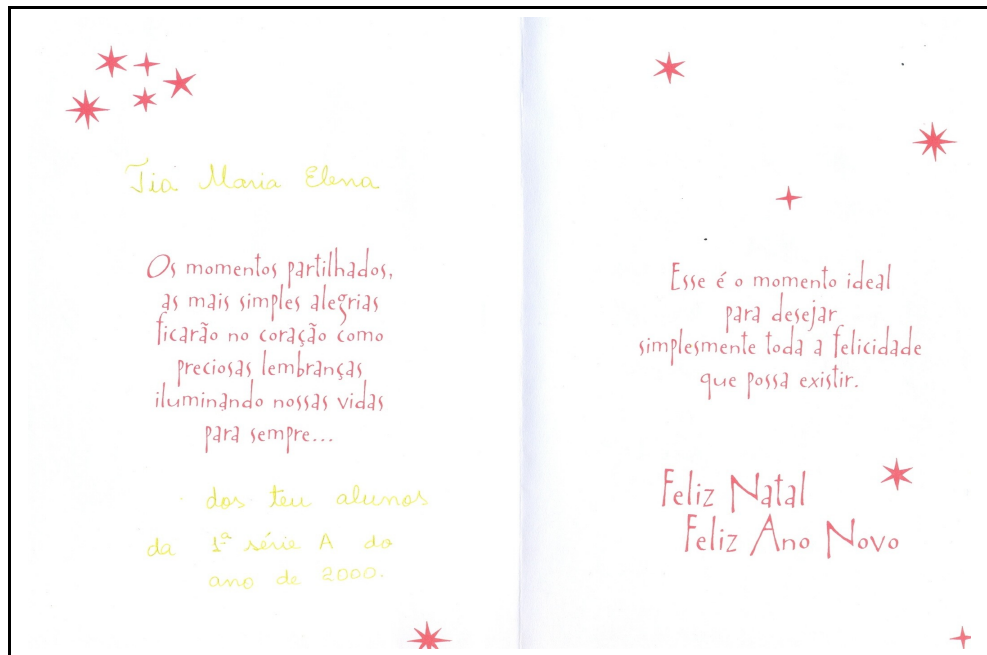 Tia Maria Elena
Os momentos partilhados,
as mais simples alegrias
ficarão no coração como
preciosas lembranças
iluminando nossas vidas
para sempre...
dos teu alunos
da 1ª série A do
ano de 2000.
Esse é o momento ideal
para desejar
simplesmente toda a felicidade
que possa existir.
Feliz Natal
Feliz Ano Novo